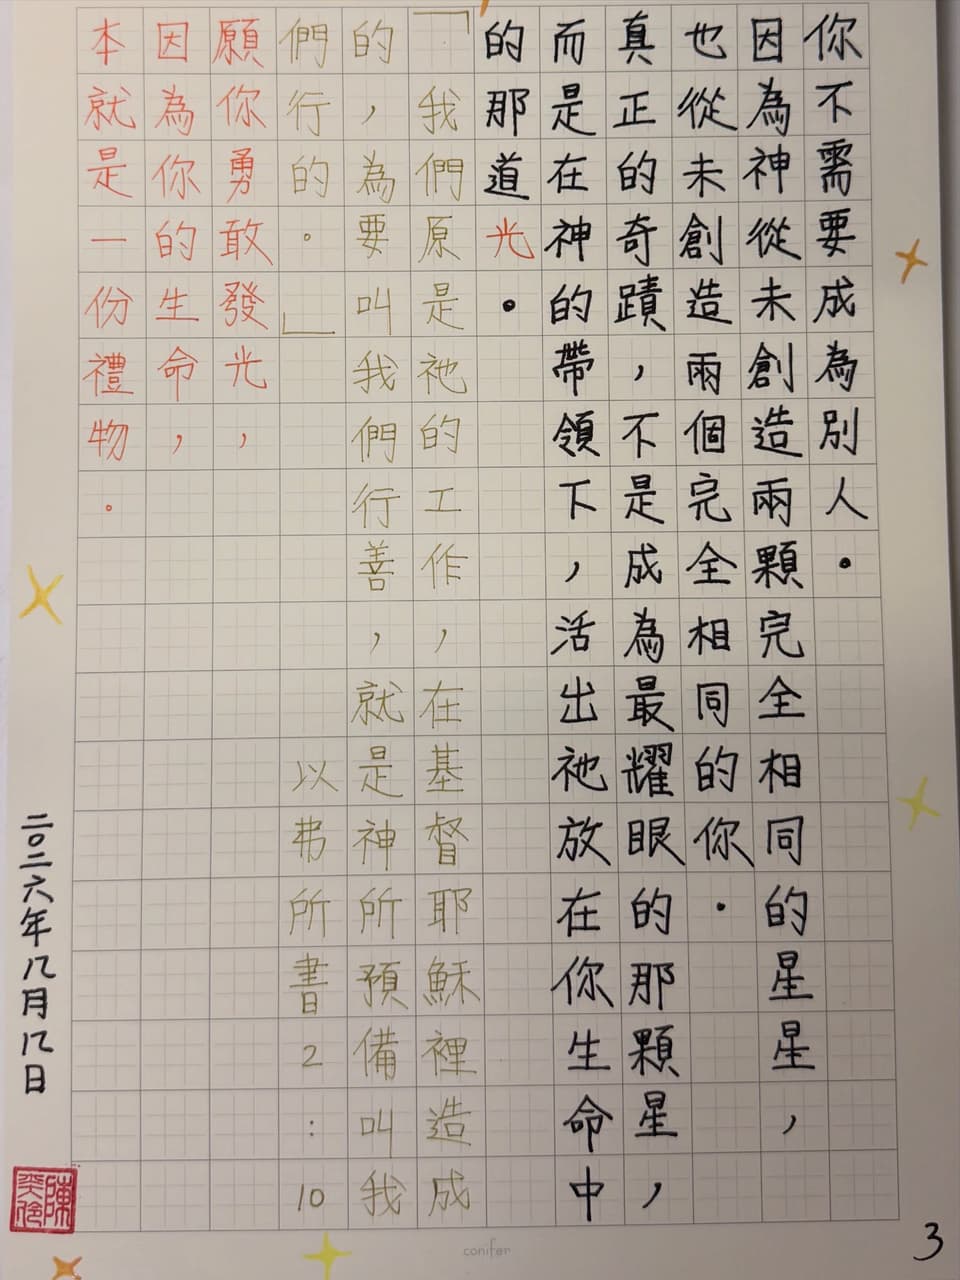 你不需要成為別人。
因為神從未創造兩顆完全相同的星星，
也從未創造兩個完全相同的你。
真正的奇蹟，不是成為最耀眼的那顆星，
而是在神的帶領下，活出祂放在你生命中
的那道光。
「我們原是祂的工作，在基督耶穌裡造成
的，為要叫我們行善，就是神所預備叫我
們行的。」 以弗所書2:10
願你勇敢發光，
因為你的生命，
本就是一份禮物。
二〇二六年八月八日
陳
conifer
3